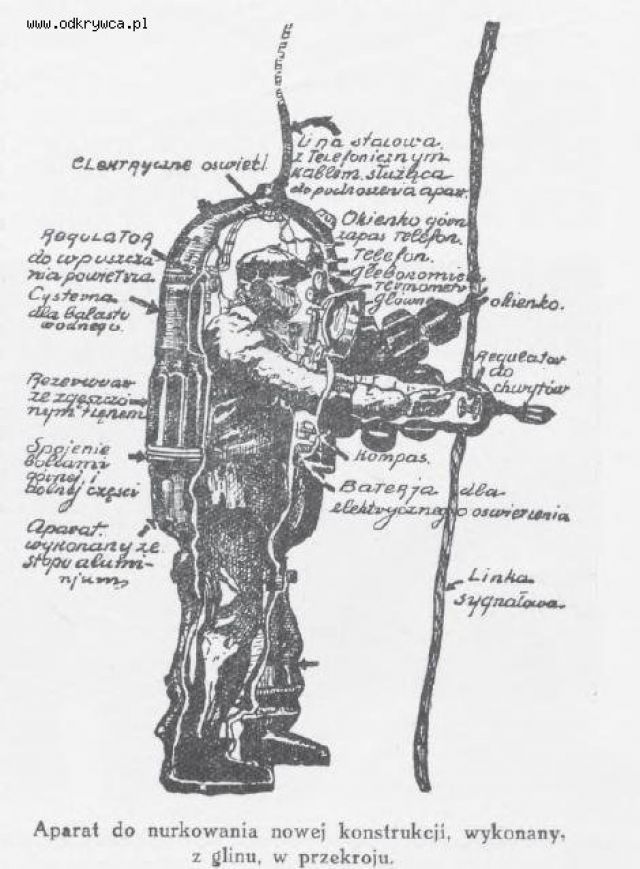 www.odkrywca.pl
Lina stalowa
z Telefonicznym
kablem służąca
do podnoszenia apar.
Elektryczne oswietl.
Okienko górn
zapas telefon.
Regulator
do wpuszcza
nia powietrza
Telefon.
głębokomierz
Termometr
główne
okienko.
Cysterna
dla balastu
wodnego.
Regulator
do
chwytów
Rezerwuar
ze zgęszczo
nym tlenem
Spojenie
górnej i
dolnej części
Kompas.
Baterja dla
elektrycznego oswietlenia
Aparat
wykonany ze
stopu alumi-
njum
Linka
sygnałowa.
Aparat do nurkowania nowej konstrukcji, wykonany,
z glinu, w przekroju.